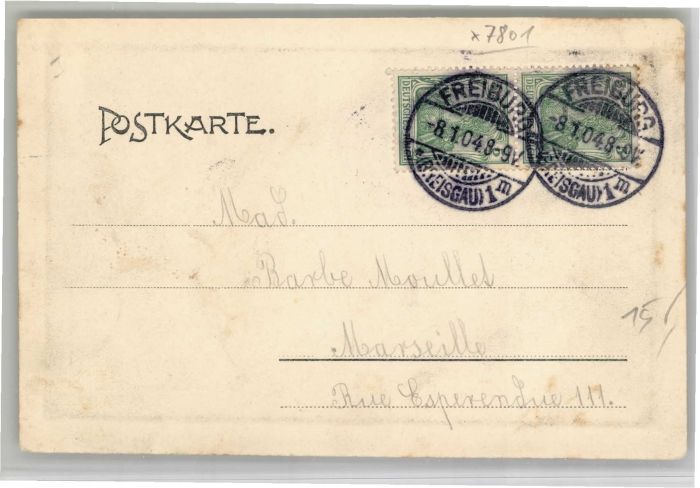 x7801
POSTKARTE.
FREIBURG
8.1.04.8-9V.
(BREISGAU) 1 m
FREIBURG
8.1.04.8-9V.
(BREISGAU) 1 m
Mad.
Barbe Moullet
15
Marseille
Rue Esperendue 111.